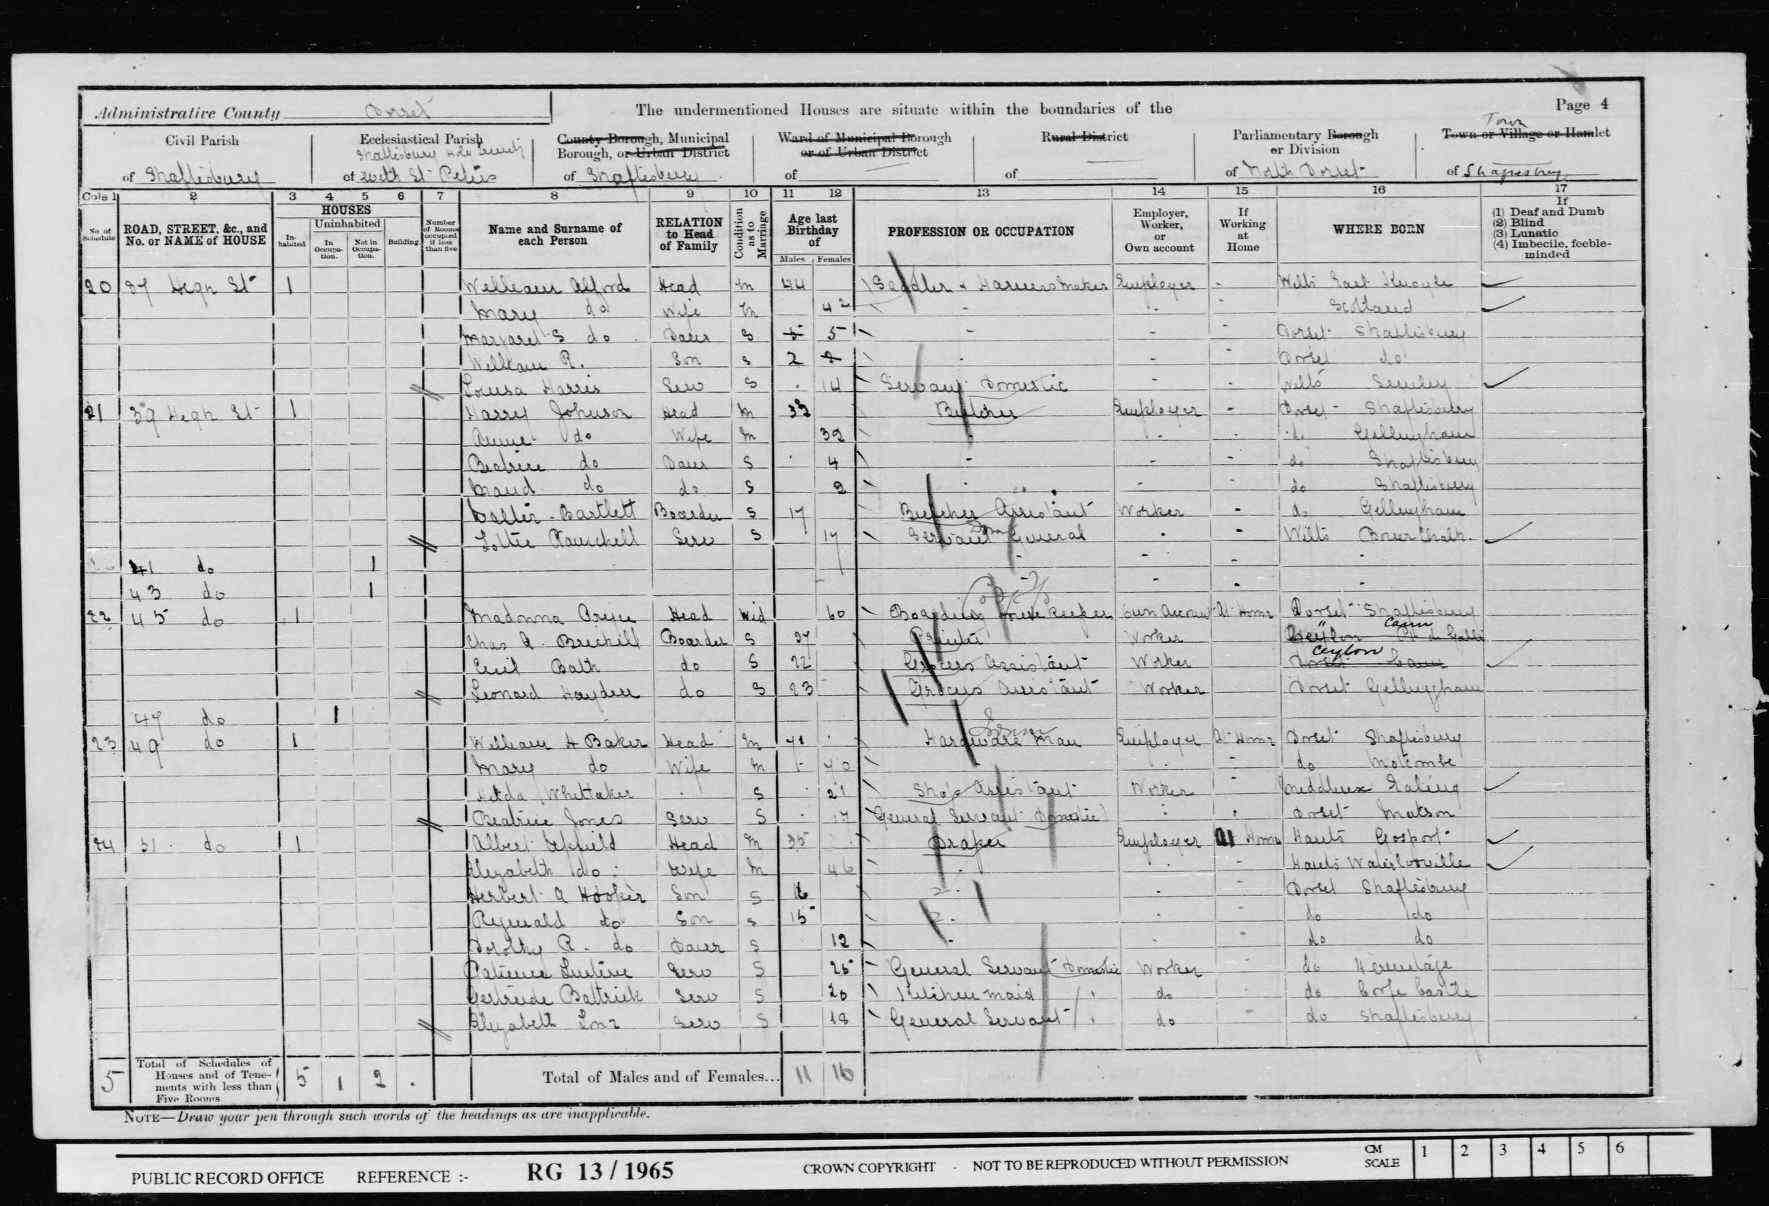 Page 4
Administrative County Dorset
The undermentioned Houses are situate within the boundaries of the
Civil Parish
of Shaftesbury
Ecclesiastical Parish
Shaftesbury Holy Trinity
of with St Peters
County Borough, Municipal
Borough, or Urban District
of Shaftesbury
Ward of Municipal Borough
or of Urban District
of
Rural District
of
Parliamentary Borough
or Division
of North Dorset
Town
Town or Village or Hamlet
of Shaftesbury
Cols 1 2 3 4 5 6 7 8 9 10 11 12 13 14 15 16 17
No. of Schedule
ROAD, STREET, &c., and No. or NAME of HOUSE
HOUSES
In-habited
Uninhabited
In Occupa-tion.
Not in Occupa-tion.
Building
Number of Rooms occupied if less than five
Name and Surname of each Person
RELATION to Head of Family
Condition as to Marriage
Age last Birthday of
Males Females
PROFESSION OR OCCUPATION
Employer, Worker, or Own account
If Working at Home
WHERE BORN
If
(1) Deaf and Dumb
(2) Blind
(3) Lunatic
(4) Imbecile, feeble-minded
20 37 High St 1 William Alford Head M 44 Saddler & Harness maker Employer - Wilts East Knoyle
Mary do Wife M 42 - Scotland
Margaret S do Daur S 5 5 - Dorset Shaftesbury
William R. Son S 2 2 - Dorset do
Louisa Harris Serv S 14 Servant Domestic - Wilts Semley
21 39 High St 1 Harry Johnson Head M 33 Butcher Employer - Dorset Shaftesbury
Annie do Wife M 32 - do Gillingham
Beatrice do Daur S 4 - do Shaftesbury
Maud do do S 2 - do Shaftesbury
Walter Bartlett Boarder S 17 Butcher Assistant Worker - do Gillingham
Lottie Serv S 17 Servant General - Wilts Chalk
41 do 1
43 do 1
22 45 do 1 Madonna Head Wid 60 Boarding House Keeper Own Account At Home Dorset Shaftesbury
Chas A. Boarder S 27 Printer Worker Cann
Cecil Bath do S 22 Grocers Assistant Worker Ceylon
Leonard Hayden do S 23 Grocers Assistant Worker Dorset Gillingham
47 do 1
23 49 do 1 William H Baker Head M 41 Hardware Man Employer At Home Dorset Shaftesbury
Mary do Wife M 40 - do Motcombe
Whittaker S 21 Shop Assistant Worker - Middlesex Ealing
Beatrice Jones Serv S 17 General Servant Domestic Dorset
24 51 do 1 Albert Head M 35 Draper Employer At Home Hants Gosport
Elizabeth do Wife M 46 - Hants Waterlooville
Herbert A Hooker Son S 16 - Dorset Shaftesbury
Reginald do Son S 15 - do do
Dorothy R. do Daur S 12 - do do
Patience Serv S 25 General Servant Domestic Worker do Hermitage
Gertrude Battrick Serv S 20 Kitchen maid do do Corfe Castle
Elizabeth Serv S 18 General Servant do do Shaftesbury
5 Total of Schedules of Houses and of Tene-ments with less than Five Rooms 5 1 2 . Total of Males and of Females... 11 16
NOTE—Draw your pen through such words of the headings as are inapplicable.
PUBLIC RECORD OFFICE REFERENCE :- RG 13 / 1965 CROWN COPYRIGHT - NOT TO BE REPRODUCED WITHOUT PERMISSION CM SCALE 1 2 3 4 5 6